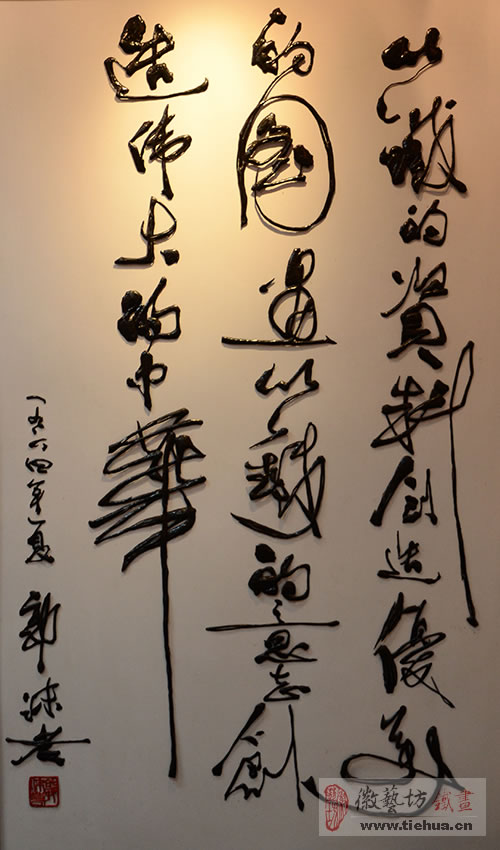 以鐵的資料创造優美
的图画以鐵的意志創
造伟大的中華
一九六四年夏 郭沫若
徽藝坊鐵畫
www.tiehua.cn